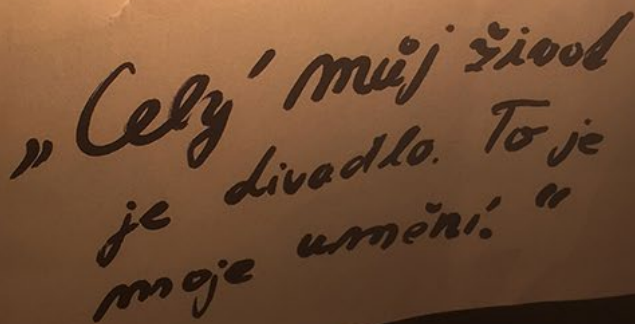 „Celý můj život
je divadlo. To je
moje umění.“